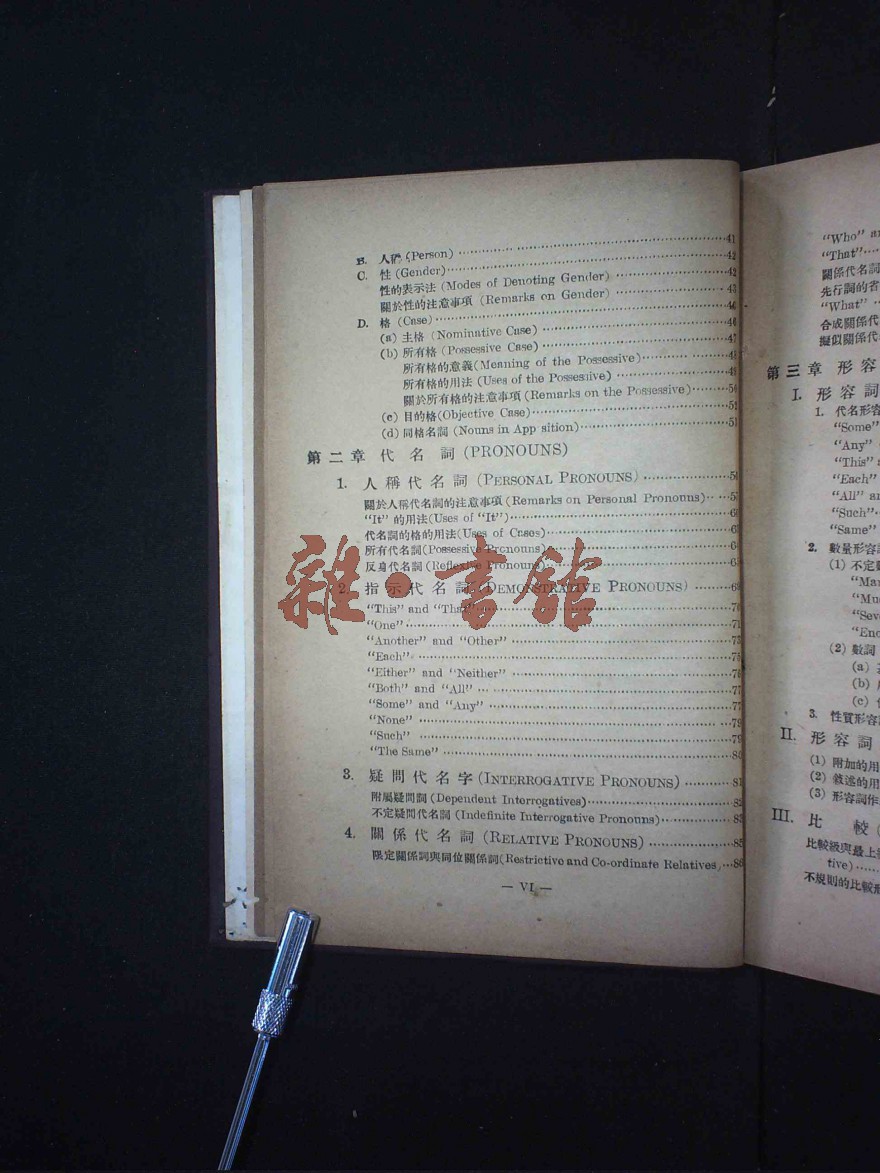 B. 人稱 (Person) 41
C. 性 (Gender) 42
性的表示法 (Modes of Denoting Gender) 42
關於性的注意事項 (Remarks on Gender) 43
D. 格 (Case) 46
(a) 主格 (Nominative Case) 46
(b) 所有格 (Possessive Case) 47
所有格的意義(Meaning of the Possessive) 48
所有格的用法 (Uses of the Possessive) 49
關於所有格的注意事項 (Remarks on the Possessive) 50
(c) 目的格(Objective Case)
(d) 同格名詞 (Nouns in App sition)
第二章 代名詞 (PRONOUNS)
1. 人稱代名詞 (PERSONAL PRONOUNS)
關於人稱代名詞的注意事項 (Remarks on Personal Pronouns)
"It" 的用法(Uses of "It")
代名詞的格的用法(Uses of Cases)
所有代名詞(Possessive Pronouns)
反身代名詞(Reflexive Pronouns)
2. 指示代名詞 (DEMONSTRATIVE PRONOUNS)
"This" and "That" 70
"One" 71
"Another" and "Other" 73
"Each" 75
"Either" and "Neither" 76
"Both" and "All" 77
"Some" and "Any" 77
"None" 79
"Such" 79
"The Same" 80
3. 疑問代名字 (INTERROGATIVE PRONOUNS) 81
附屬疑問詞 (Dependent Interrogatives) 82
不定疑問代名詞 (Indefinite Interrogative Pronouns) 83
4. 關係代名詞 (RELATIVE PRONOUNS) 85
限定關係詞與同位關係詞(Restrictive and Co-ordinate Relatives) 86
— VI —
"Who"
"That"
關係代名詞
先行詞的省
"What"
合成關係代
擬似關係代
第三章 形容
I. 形容詞
1. 代名形容
"Some"
"Any"
"This"
"Each"
"All"
"Such"
"Same"
2. 數量形容
(1) 不定
(2) 數詞
(a)
(b)
(c)
3. 性質形容
II. 形容詞
(1) 附加的用
(2) 敘述的用
(3) 形容詞作
III. 比較
比較級與最上
tive)
不規則的比較
雜·書館